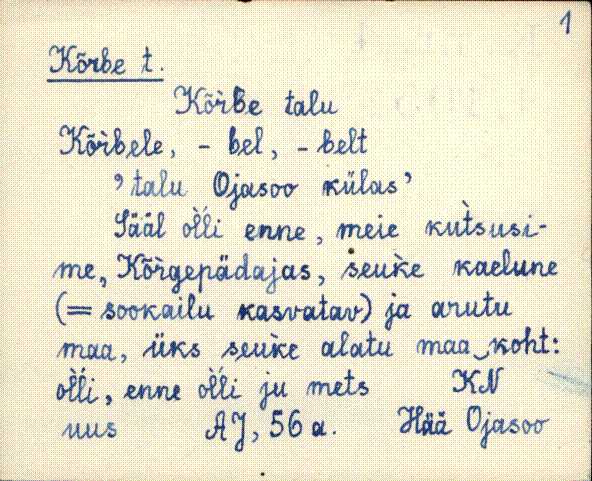 1
Kõrbe t.
Kõ̀rbe talu
Kõ̀rbele, -bel, -belt
'talu Ojasoo külas'
Sääl òĺli enne, meie kùtsusi-
me, Kõ̀rgepädajas, seuke kaelune
(= sookailu kasvatav) ja arutu
maa, üks seuke alatu maa‿koht:
òĺli, enne òĺli ju mets KN
uus AJ, 56 a. Hää Ojasoo